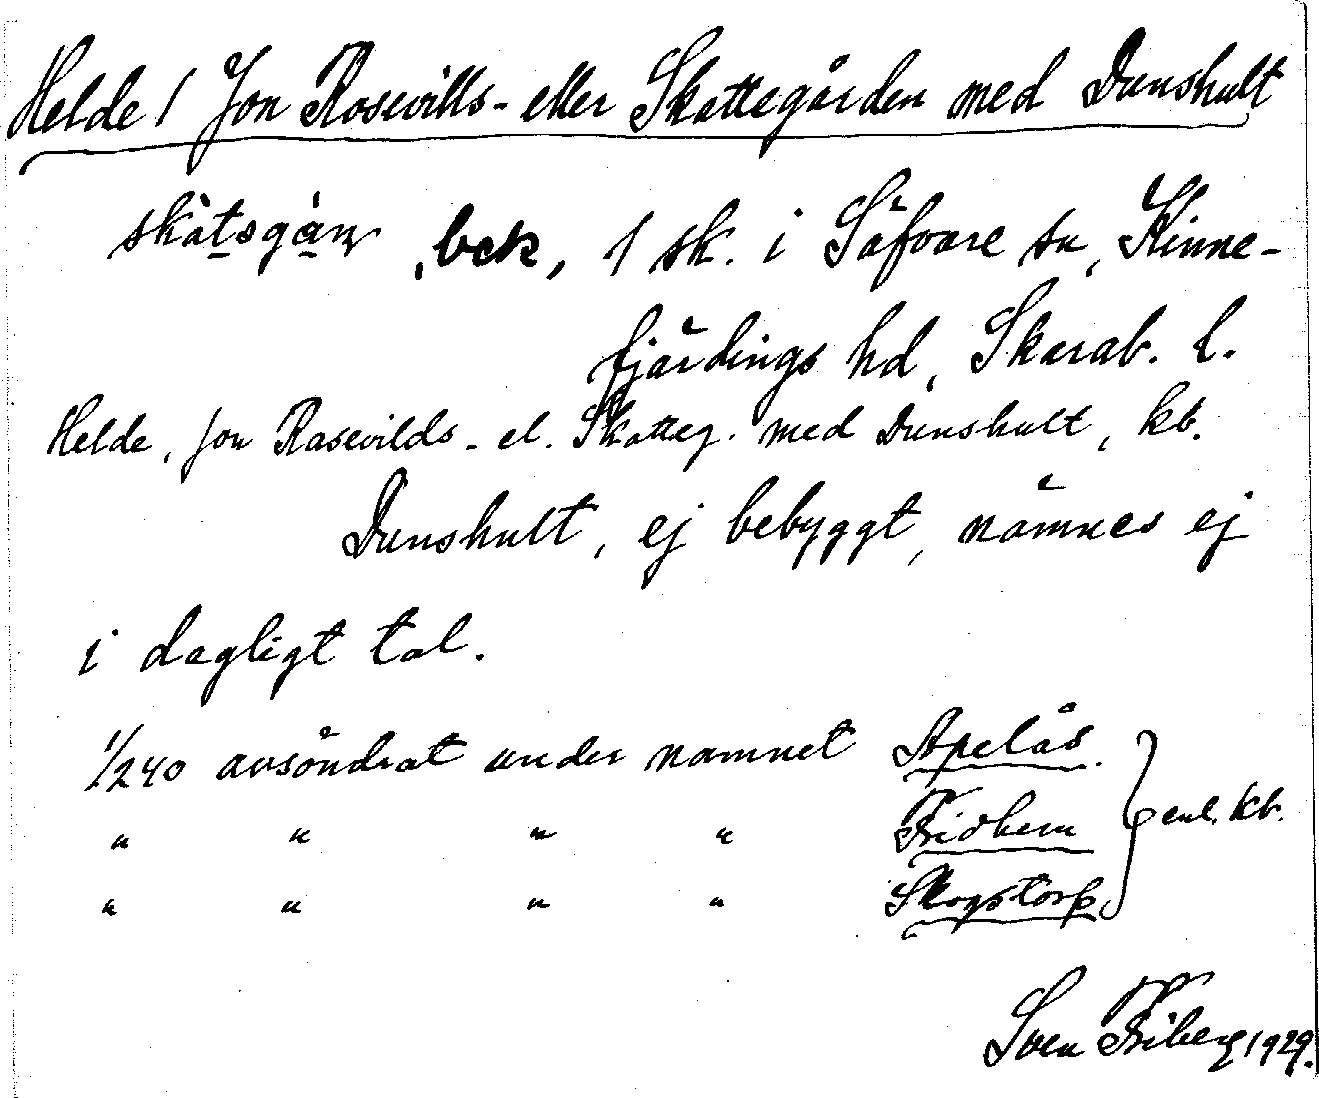 Helde 1 Jon Rosevills- eller Skattegården med Dunshult
bek, 1 sk. i Säfvare sn, Kinne-
fjärdings hd, Skarab. l.
Helde, Jon Rasevilds- el. Skatteg. med Dunshult, kb.
Dunshult, ej bebyggt, nämnes ej
i dagligt tal.
1/240 avsöndrat under namnet Apelås
" " " " Fridhem enl. kb.
" " " " Skogstorp
Sven Friberg 1929.